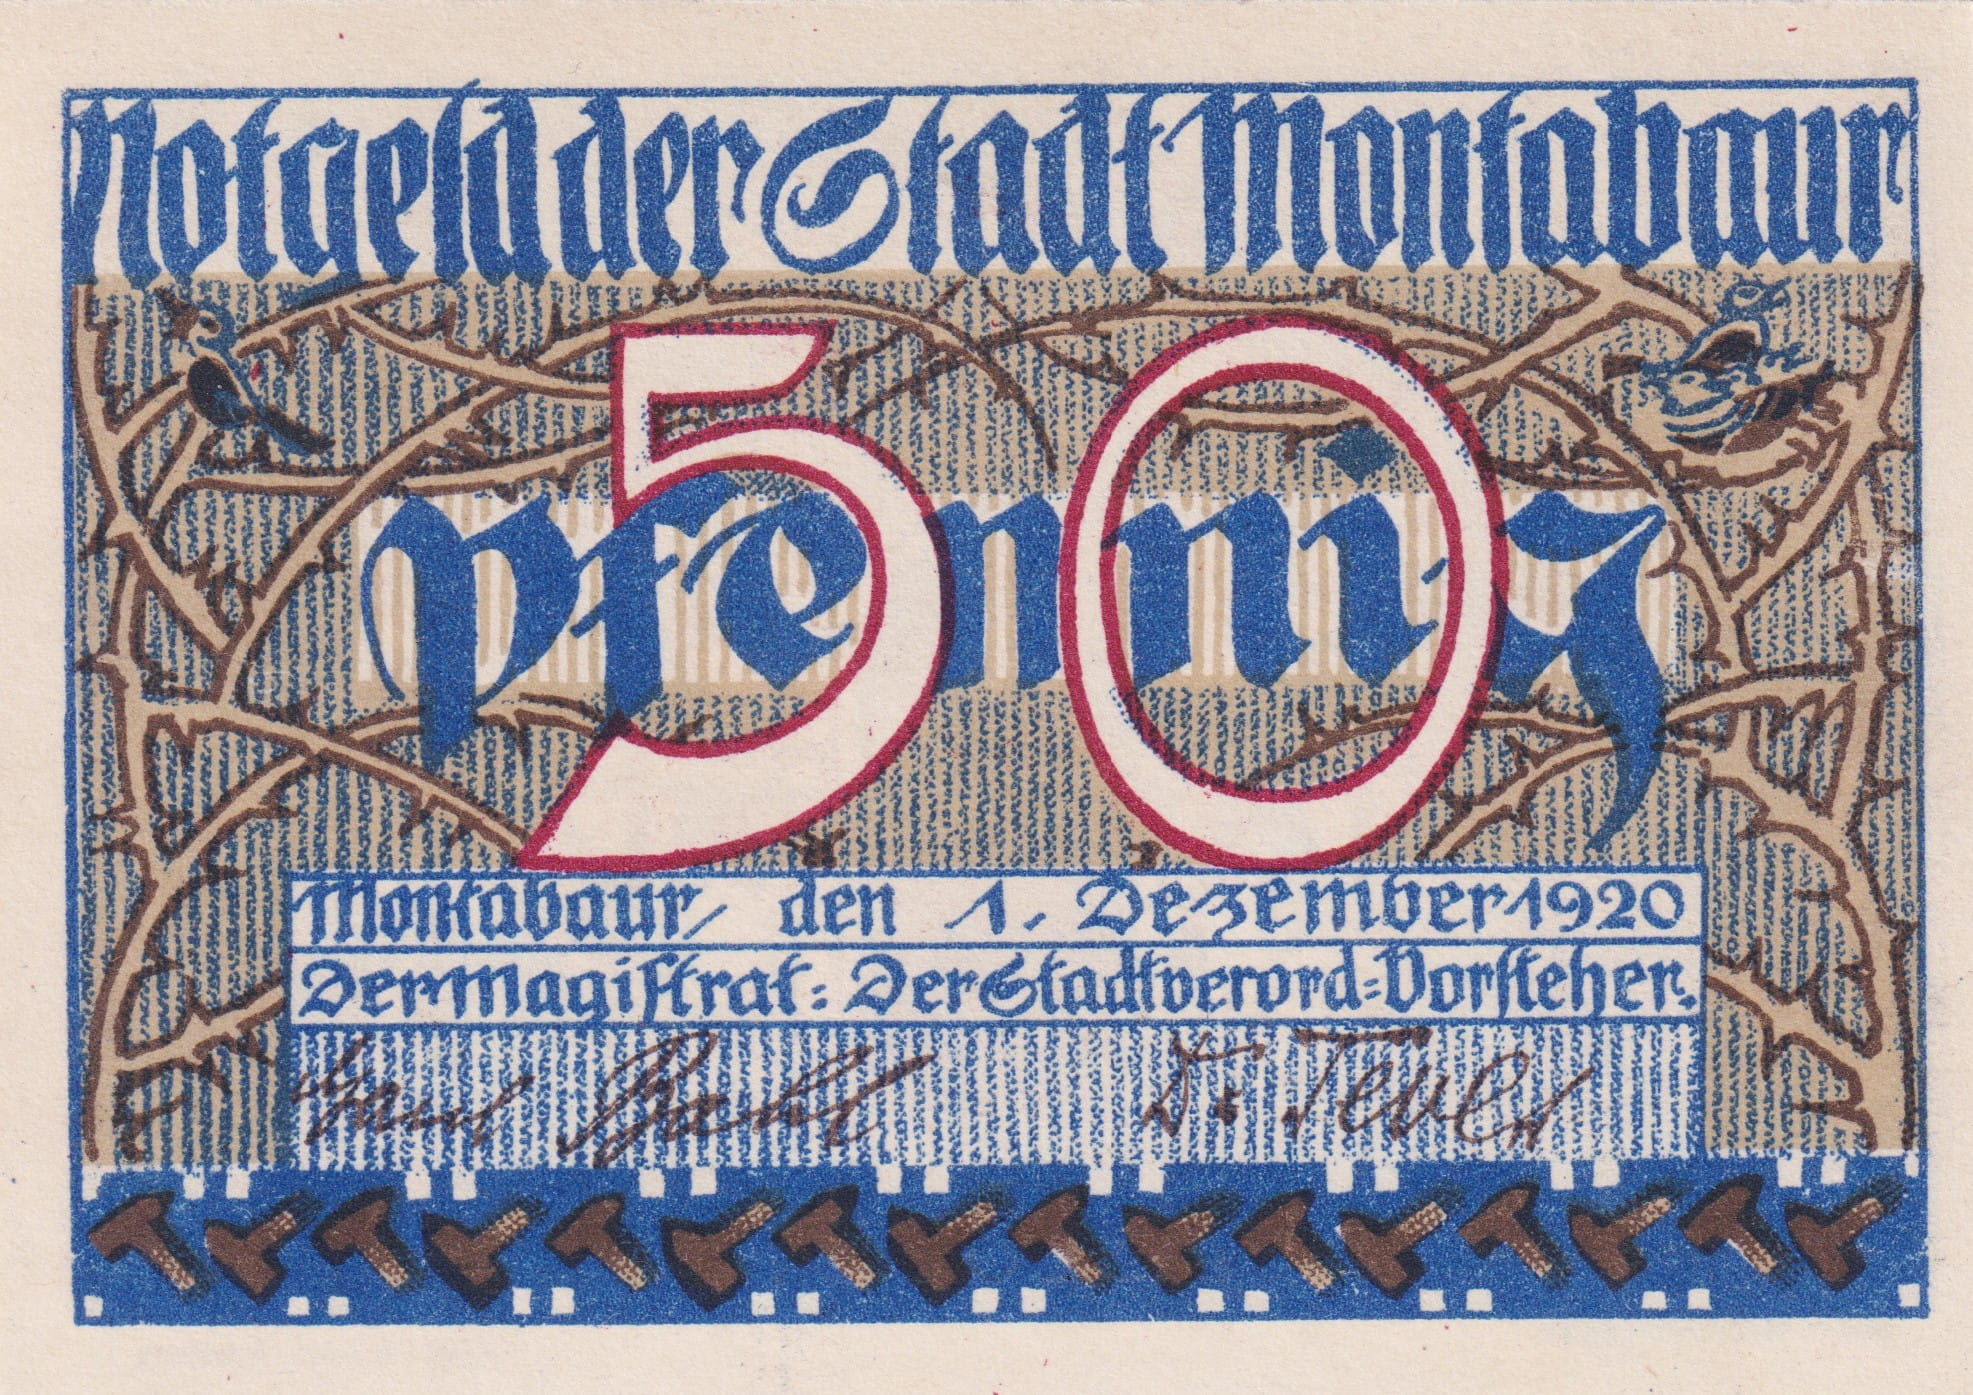 Notgeld der Stadt Montabaur
50
Pfennig
Montabaur, den 1. Dezember 1920
Der Magistrat: Der Stadtverord=Vorsteher.
Dr.